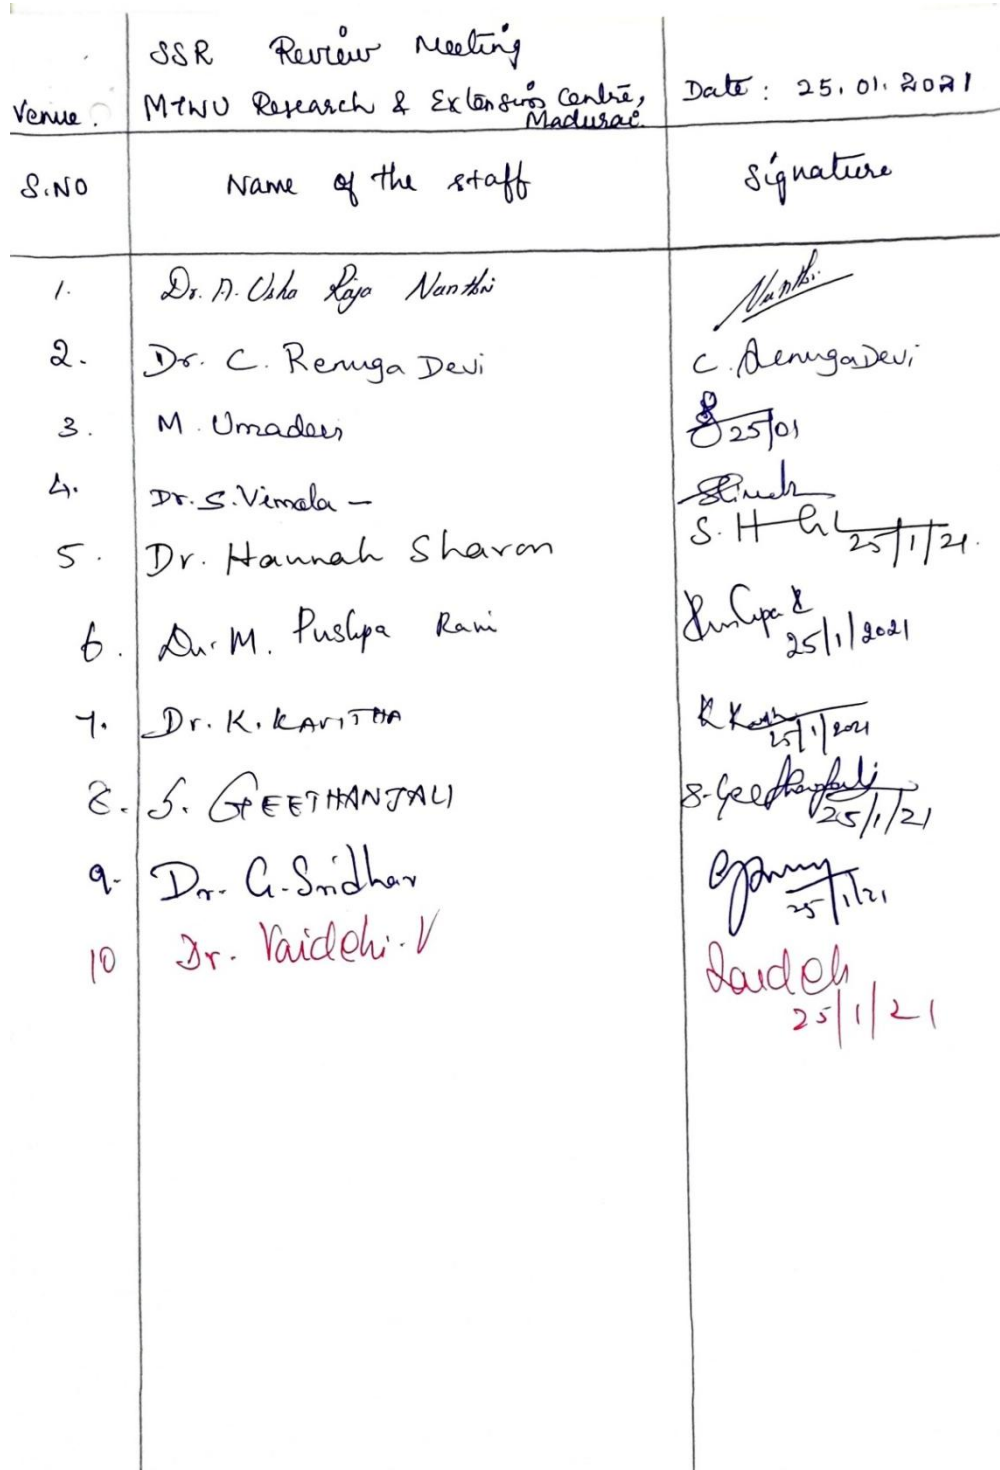 SSR Review Meeting
Venue: MTWU Research & Extension Centre, Date: 25.01.2021
Madurai.
S.NO Name of the staff Signature
1. Dr. A. Usha Raja Nanthini
2. Dr. C. Renuga Devi C. RenugaDevi
3. M. Umadevi 25/01
4. Dr. S. Vimala -
5. Dr. Hannah Sharon S. H 25/1/21.
6. Dr. M. Pushpa Rani 25/1/2021
7. Dr. K. KAVITHA 25/1/2021
8. S. GEETHANJALI S. Geethanjali 25/1/21
9. Dr. G. Sridhar 25/1/21
10 Dr. Vaidehi. V Vaideh 25/1/21